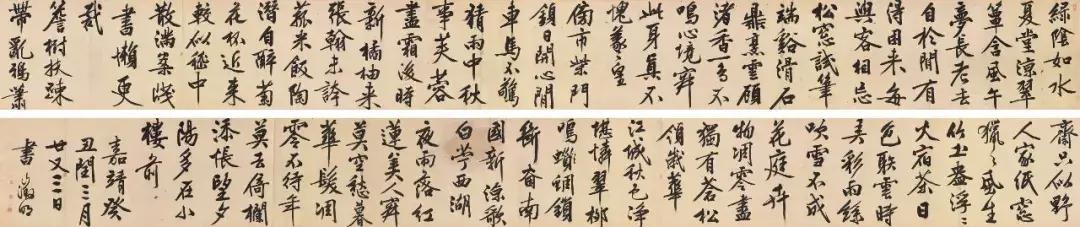 綠陰如水
夏堂涼翠
簟含風午
夢長老去
自於閒有
得困來每
與客相忘
松窗試筆
端谿滑石
鼎烹雲顧
渚香一鳥不
鳴心境寂
此身真不
愧羲皇
傍市柴門
鎖日開心閒
車馬不驚
猜雨中秋
事芙蓉
盡霜後時
新橘柚來
張翰未誇
菰米飯陶
潛自醉菊
花杯近來
較似嵇中
散滿案牋
書懶更
裁
簷樹扶疎
帶亂鴉蕭
齋只似野
人家紙窗
獵〻風生
竹土盎浮〻
火宿茶日
色聯雲時
弄彩雨絲
吹雪不成
花庭卉
物凋零盡
獨有蒼松
領歲華
江城秋色淨
堪憐翠柳
鳴蜩鎖
斷南
國新涼歌
白苧西湖
夜雨落紅
蓮美人寂
莫空愁暮
華髮凋
零不待年
莫去倚欄
添悵望夕
陽多在小
樓前
嘉靖癸
丑閏三月
廿又三日
書 徵明